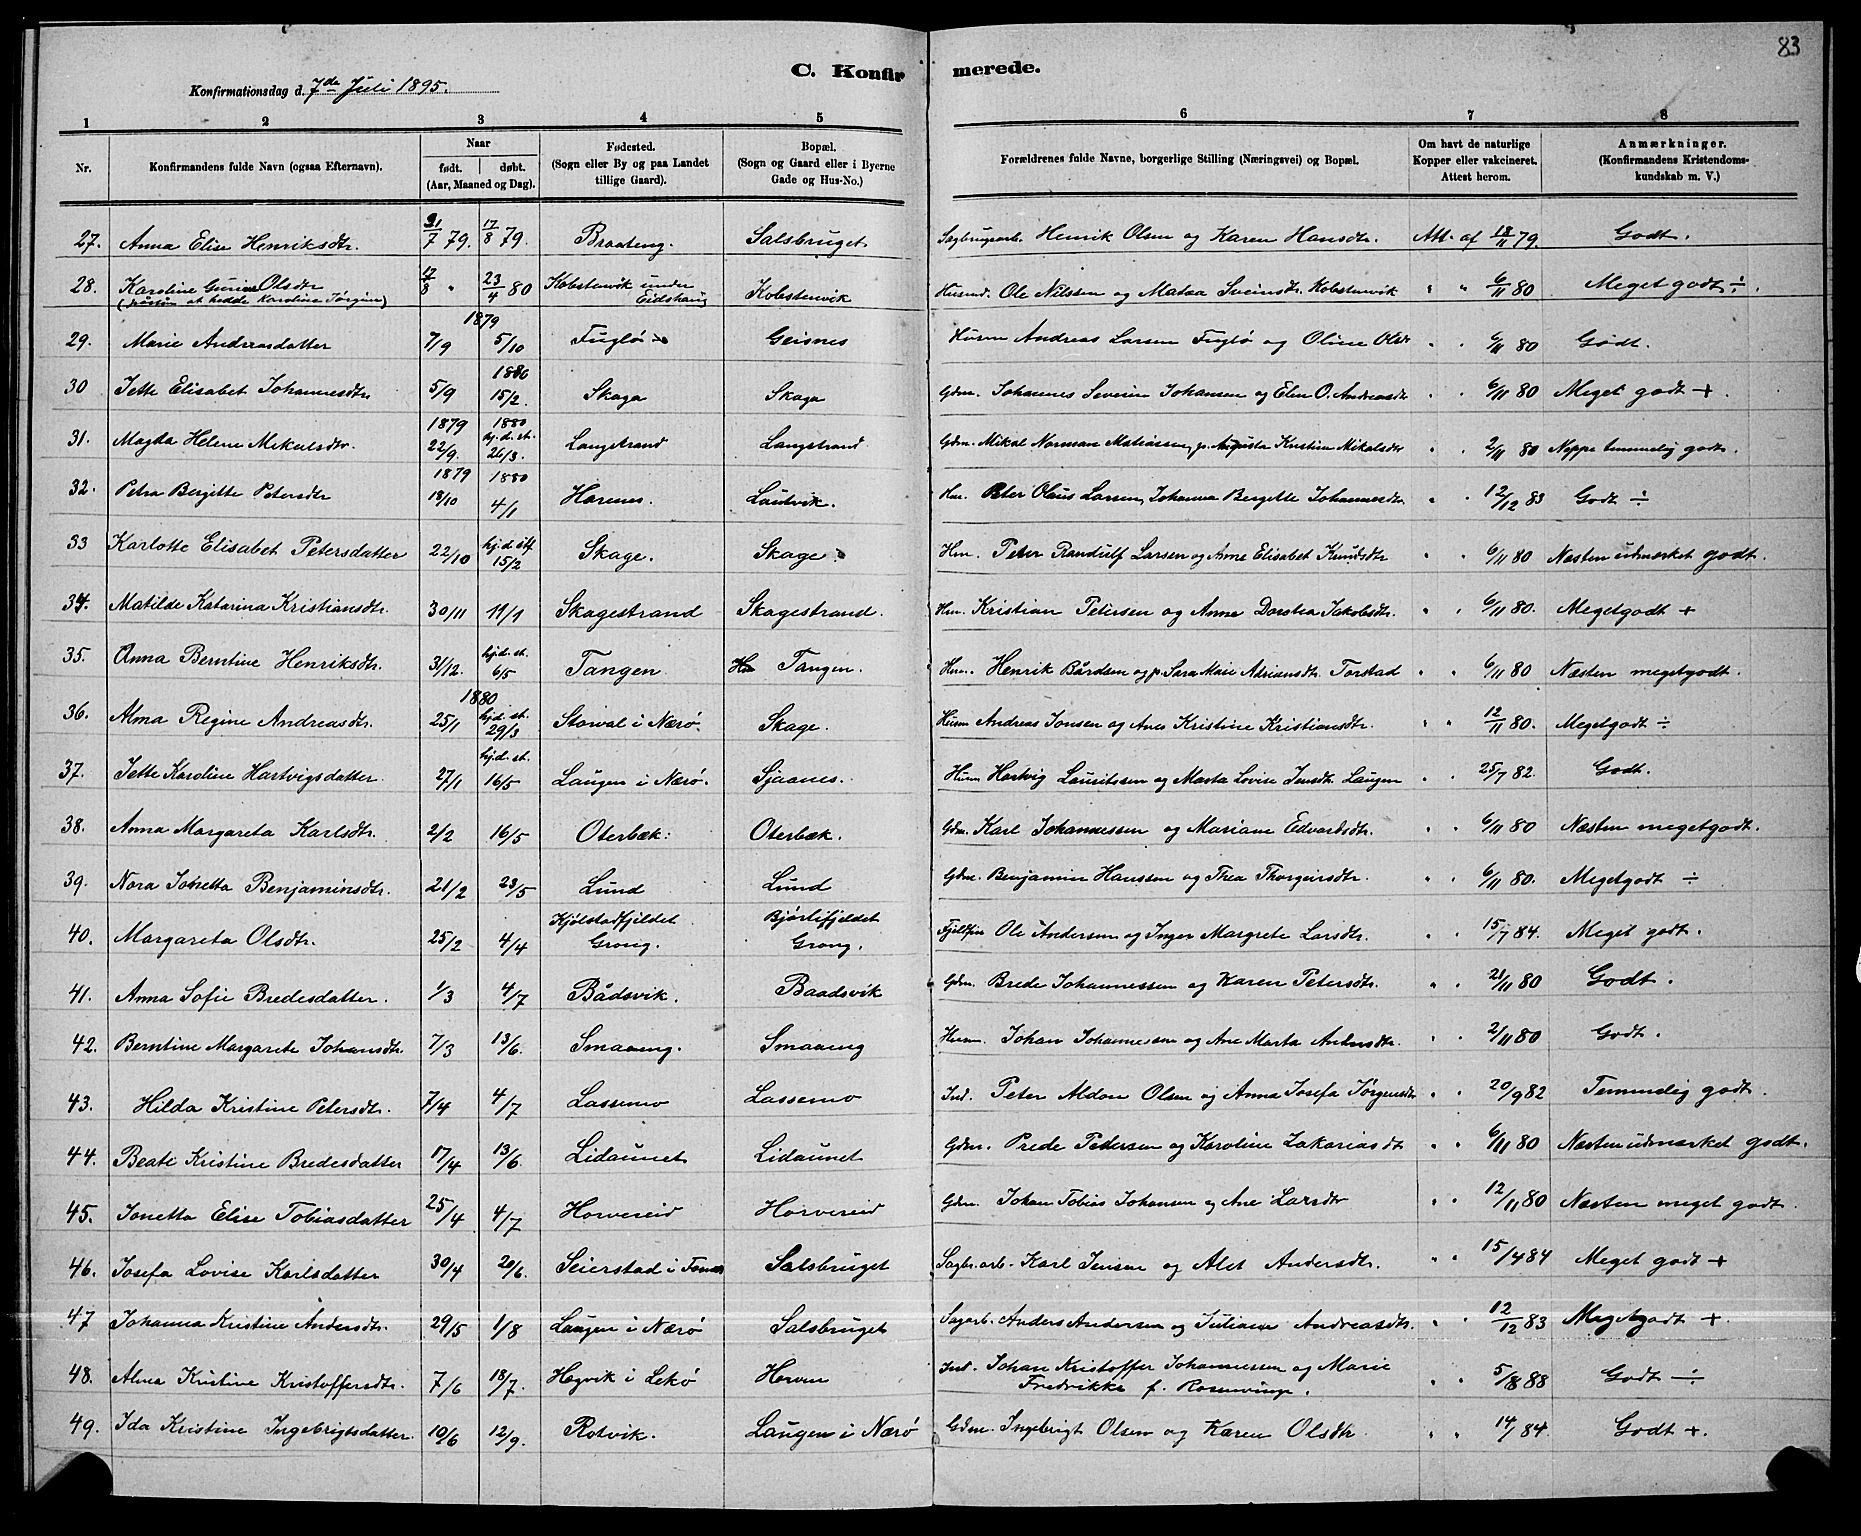 83
C. Konfirmerede.
Konfirmationsdag d. 7de Juli 1895.
1 2 3 4 5 6 7 8
Nr. Konfirmandens fulde Navn (ogsaa Efternavn). Naar født. døbt. (Aar, Maaned og Dag). Fødested. (Sogn eller By og paa Landet tillige Gaard). Bopæl. (Sogn og Gaard eller i Byerne Gade og Hus-No.) Forældrenes fulde Navne, borgerlige Stilling (Næringsvei) og Bopæl. Om havt de naturlige Kopper eller vakcineret. Attest herom. Anmærkninger. (Konfirmandens Kristendomskundskab m. V.)
27. Anna Elise Henriksdtr. 31/7 79. 17/8 79. Braateng. Salsbruget Sagbrugsarb. Henrik Olsen og Karen Hansdtr. Att. af 18/11 79. Godt.
28. Karoline Olsdtr (ønsker at hedde Karoline Jørgine) 17/8 " 23/4 80 Kobstenvik under Eidshaug Kobstenvik Husmd. Ole Nilssen og Matea Sveinsdtr. Kobstenvik " " 6/11 80 Meget godt ÷.
29. Marie Andreasdatter 1879 7/9 5/10 Fuglø Geisnes Husm Andreas Larsen Fuglø og Oline Olsdr " " 6/11 80 Godt.
30 Jette Elisabet Johannesdtr 5/9 1880 15/2. Skaga Skaga Gdm. Johannes Severin Johansen og Elen O. Andreasdtr " " 6/11 80 Meget godt +.
31. Magda Helene Mikalsdtr. 1879 22/9. 1880 hj.d. st. 26/3. Langstrand Langstrand Gdm. Mikal Norman Matiassen, p. Augusta Kristine Mikalsdtr " " 2/11 80 Neppe temmelig godt.
32. Petra Bergitte Petersdtr 1879 18/10 1880 4/1 Horsnes. Lautvik. Hm. Peter Olaus Larsen, Johanna Bergitte Johannesdtr " " 12/12 83 Godt ÷
33 Karlotte Elisabet Petersdatter 22/10 hj.d. stf 15/2 Skage. Skage. Hm. Peter Randulf Larsen og Anne Elisabet Knudsdtr " " 6/11 80 Næsten udmærket godt.
34. Matilde Katarina Kristiansdtr. 30/11 11/1 Skagestrand Skagestrand. Hm. Kristian Petersen og Anne Dorotea Jakobsdtr. " " 6/11 80. Megetgodt +
35. Anna Berntine Henriksdtr. 31/12. hj.d. st. 6/5 Tangen. Tangen. Hm. Henrik Bårdsen og p. Sara Marie Adriansdtr. Torstad " " 6/11 80 Næsten megetgodt.
36. Alma Regine Andreasdtr. 1880 25/1 hj.d. st. 29/3 Storval i Nærø. Skage. Husm Andreas Jonsen og Ane Kristine Kristiansdtr. " " 12/11 80. Megetgodt ÷
37. Jette Karoline Hartvigsdatter. 27/1 hj.d. st. 16/5 Laugen i Nærø. Sjaanes. Husm Hartvig Lauritssen og Marta Lovise Jensdtr. Laugen " " 25/7 82. Godt.
38. Anna Margareta Karlsdtr. 2/2 16/5 Oterbæk. Oterbæk. Gdm. Karl Johannessen og Mariane Edvardsdtr. " " 6/11 80 Næsten megetgodt.
39. Nora Jonetta Benjaminsdtr. 21/2 23/5 Lund Lund Gdm. Benjamin Hanssen og Thea Thorgeirsdtr. " " 6/11 80. Megetgodt ÷
40. Margareta Olsdtr. 25/2 4/4 Kjølstadfjeldet Grong. Bjørlifjeldet Grong. Ole Andersen og Inger Margrete Larsdtr. " " 15/7 84. Meget godt.
41. Anna Sofie Bredesdatter. 1/3 4/7 Bådsvik. Baadsvik Gdm. Brede Johannessen og Karen Petersdtr. " " 21/11 80 Godt.
42. Berntine Margarete Johansdtr. 7/3 13/6. Smaaeng. Smaaeng Husm. Johan Johannessen og Ane Marta Antonsdtr. " " 2/11 80 Godt.
43. Hilda Kristine Petersdtr. 7/4 4/7 Lassemo Lassemo Ind. Peter Aldon Olsen og Anna Josefa Jørgensdtr " " 20/9 82 Temmelig godt.
44. Beate Kristine Bredesdatter 17/4 13/6. Lidaunet Lidaunet Gdm. Prede Pedersen og Karoline Zakariasdtr " " 6/11 80 Næsten udmærket godt.
45. Jonetta Elise Tobiasdatter 25/4 4/7 Horvereid Horvereid Gdm. Johan Tobias Johansen og Ane Larsdtr " " 12/11 80 Næsten meget godt.
46. Josefa Lovise Karlsdatter 30/4 20/6. Seierstad i Fosnes Salsbruget Sagbr. arb. Karl Jensen og Alet Andersdtr. " " 15/4 84 Meget godt +
47 Johanna Kristine Andersdtr. 29/5 1/8 Laugen i Nærø Salsbruget Sagarb. Anders Andersen og Juliane Andreasdtr. " " 12/12 83 Megetgodt +.
48. Alma Kristine Kristoffersdtr. 7/6 18/7. Hegvik i Lekø Horven Ind. Johan Kristoffer Johannessen og Marie Fredrikke f. Rosenvinge. " " 5/8 88 Godt ÷
49. Ida Kristine Ingebrigtsdatter. 10/6 12/9. Rotvik. Laugen i Nærø Gdm. Ingebrigt Olsen og Karen Olsdtr. " " 14/ 84. Godt +.